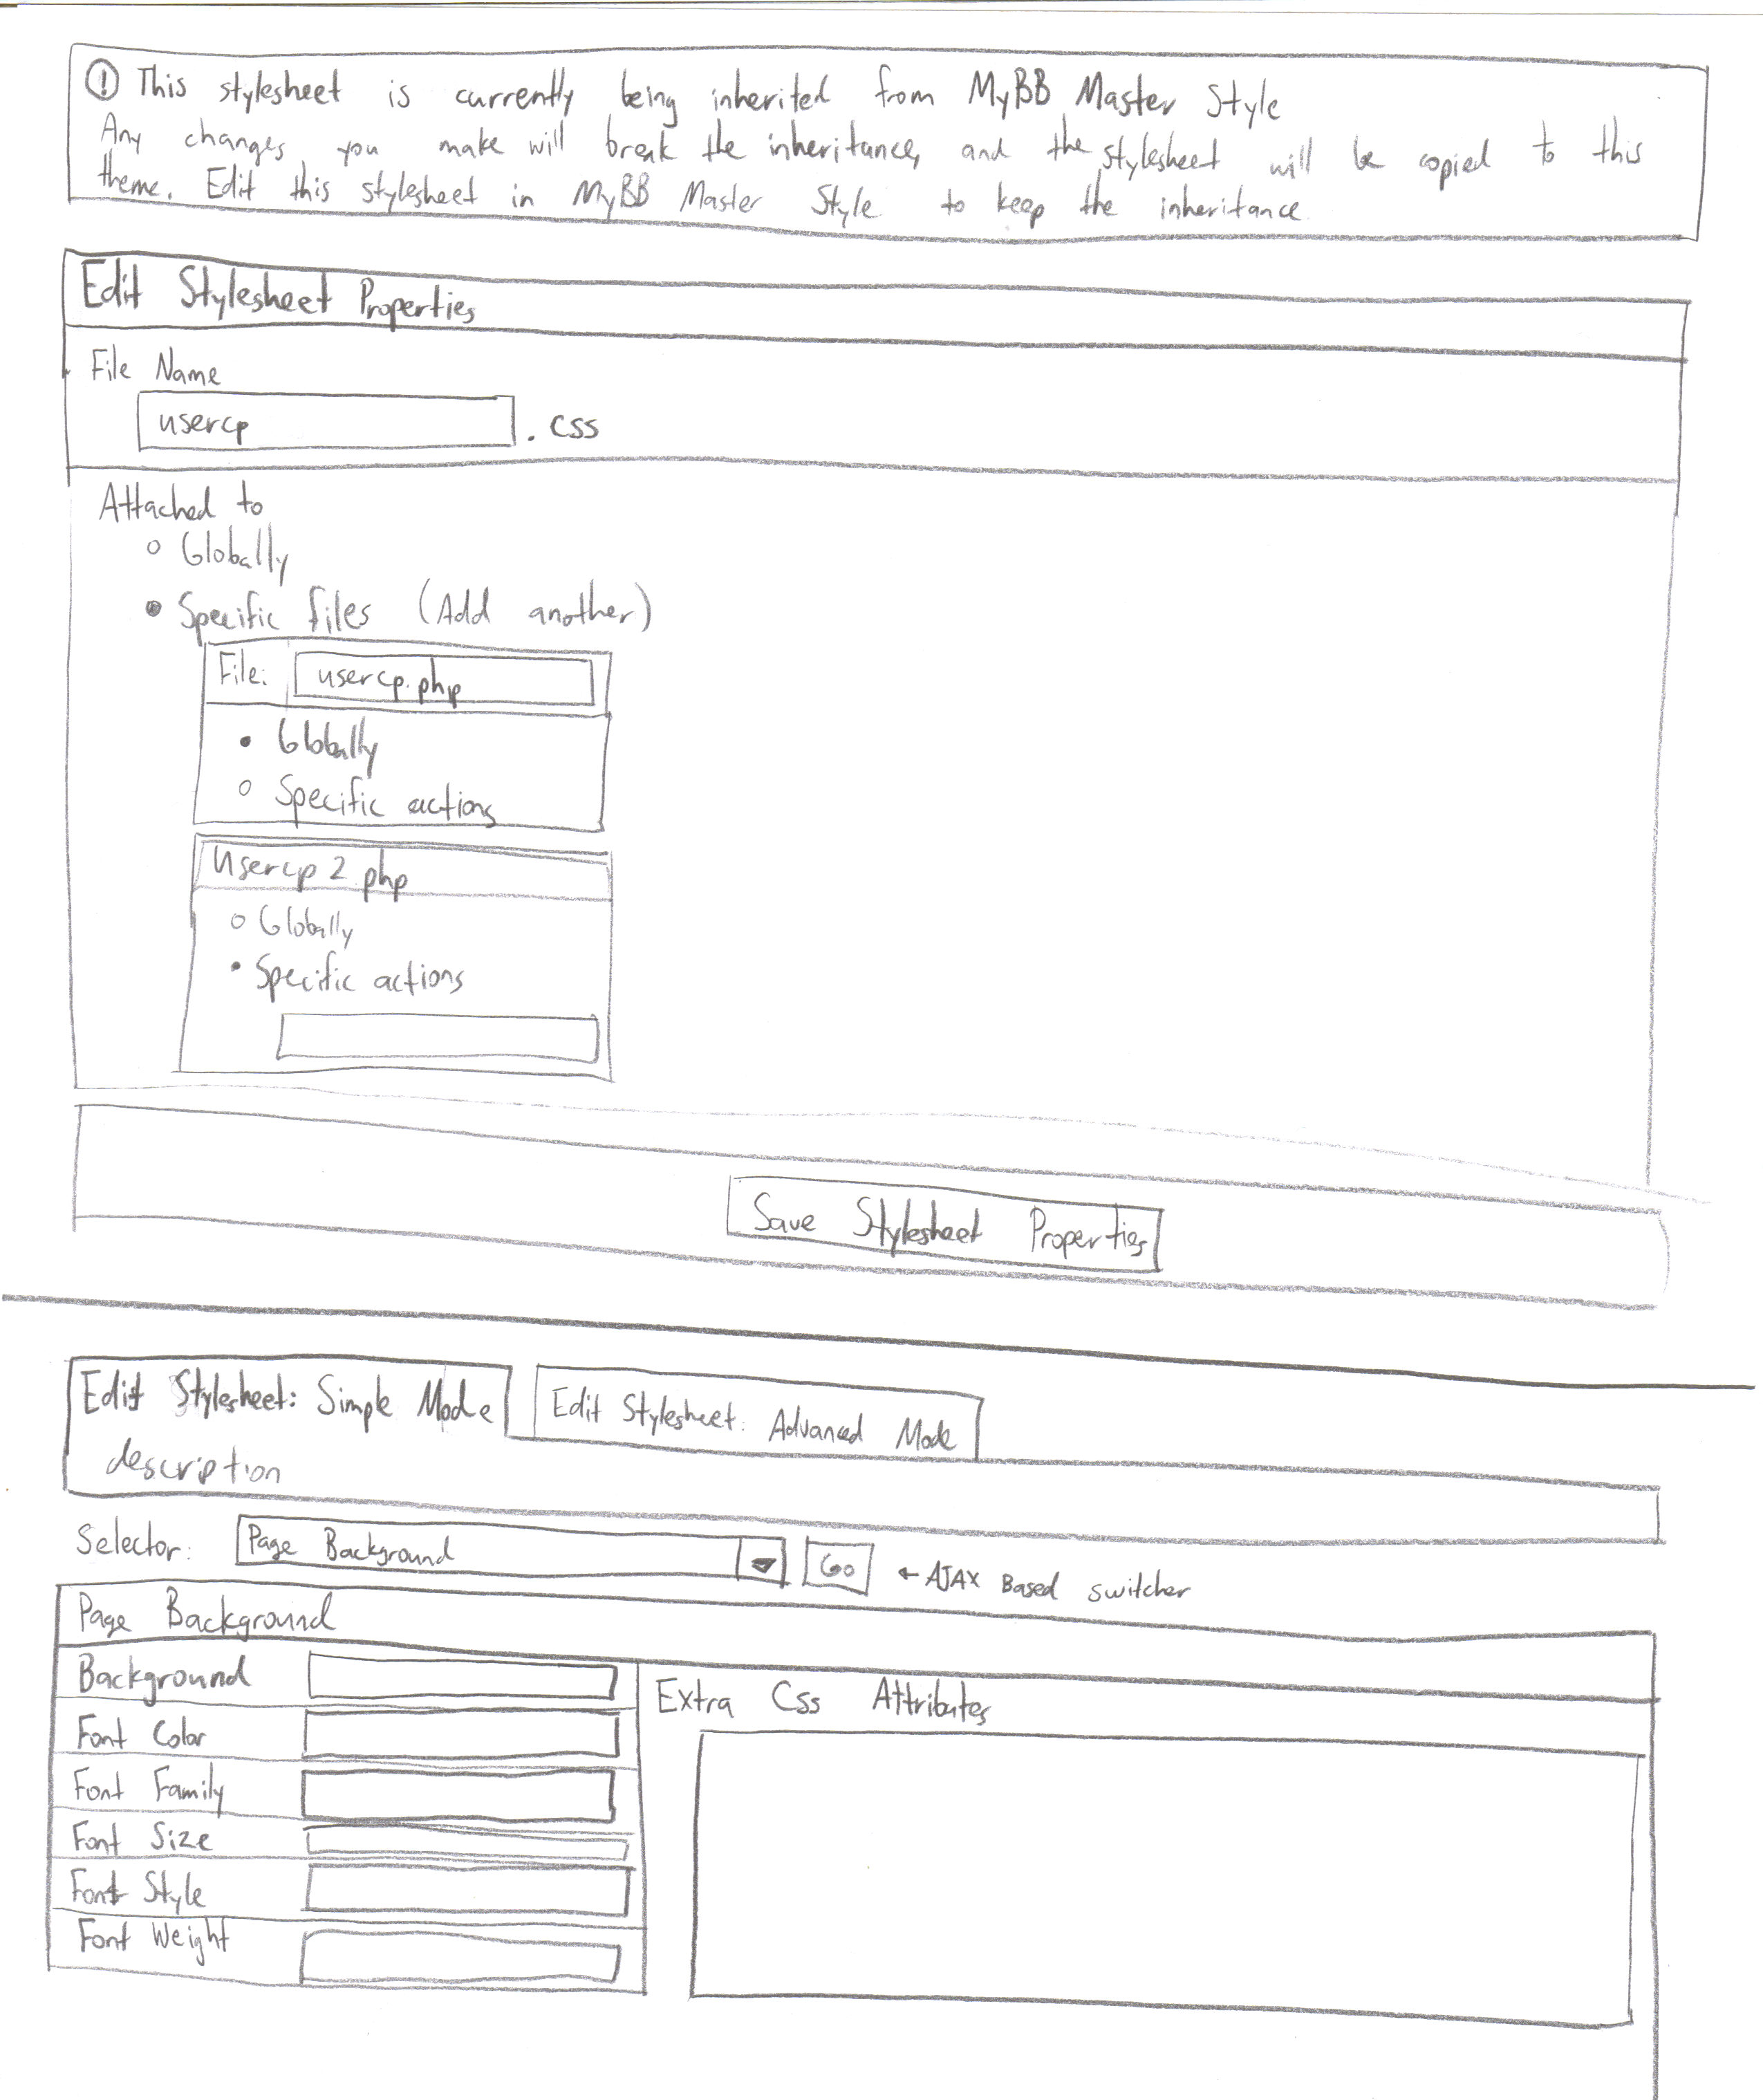 ! This stylesheet is currently being inherited from MyBB Master Style
Any changes you make will break the inheritance, and the stylesheet will be copied to this
theme. Edit this stylesheet in MyBB Master Style to keep the inheritance.
Edit Stylesheet Properties
File Name
usercp .css
Attached to
Globally
Specific files (Add another)
File: usercp.php
Globally
Specific actions
Usercp2.php
Globally
Specific actions
Save Stylesheet Properties
Edit Stylesheet: Simple Mode Edit Stylesheet: Advanced Mode
description
Selector: Page Background Go ← AJAX Based switcher
Page Background
Background
Extra Css Attributes
Font Color
Font Family
Font Size
Font Style
Font Weight